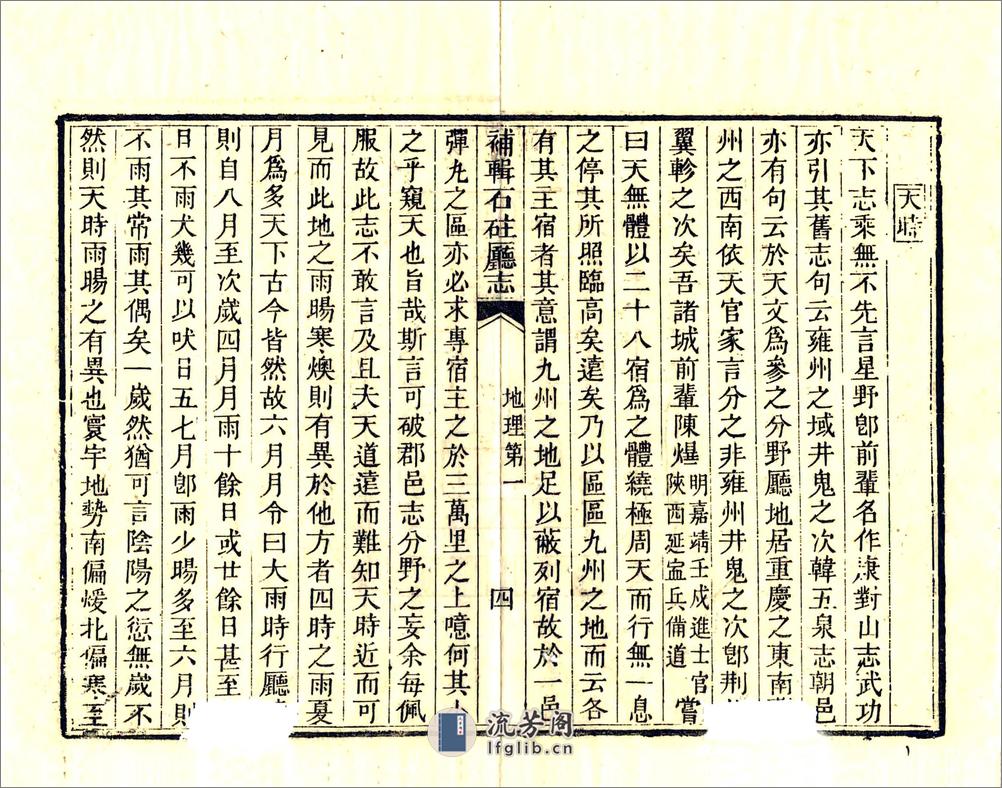 天時
天下志乘無不先言星野卽前輩名作康對山志武功
亦引其舊志句云雍州之域井鬼之次韓五泉志朝邑
亦有句云於天文爲參之分野廳地居重慶之東南
州之西南依天官家言分之非雍州井鬼之次卽荆
翼軫之次矣吾諸城前輩陳爆明嘉靖壬戌進士官陝西延寍兵備道嘗
曰天無體以二十八宿爲之體繞極周天而行無一息
之停其所照臨高矣遠矣乃以區區九州之地而云各
有其主宿者其意謂九州之地足以蔽列宿故於一邑
補輯石砫廳志 地理第一 四
彈丸之區亦必求專宿主之於三萬里之上噫何其
之乎窺天也旨哉斯言可破郡邑志分野之妄余每佩
服故此志不敢言及且夫天道遠而難知天時近而可
見而此地之雨暘寒燠則有異於他方者四時之雨夏
月爲多天下古今皆然故六月月令曰大雨時行廳
則自八月至次歲四月月雨十餘日或廿餘日甚至
日不雨犬幾可以吠日五七月卽雨少暘多至六月則
不雨其常雨其偶矣一歲然猶可言陰陽之愆無歲不
然則天時雨暘之有異也寰宇地勢南偏煖北偏寒至
流芳阁
lfglib.cn